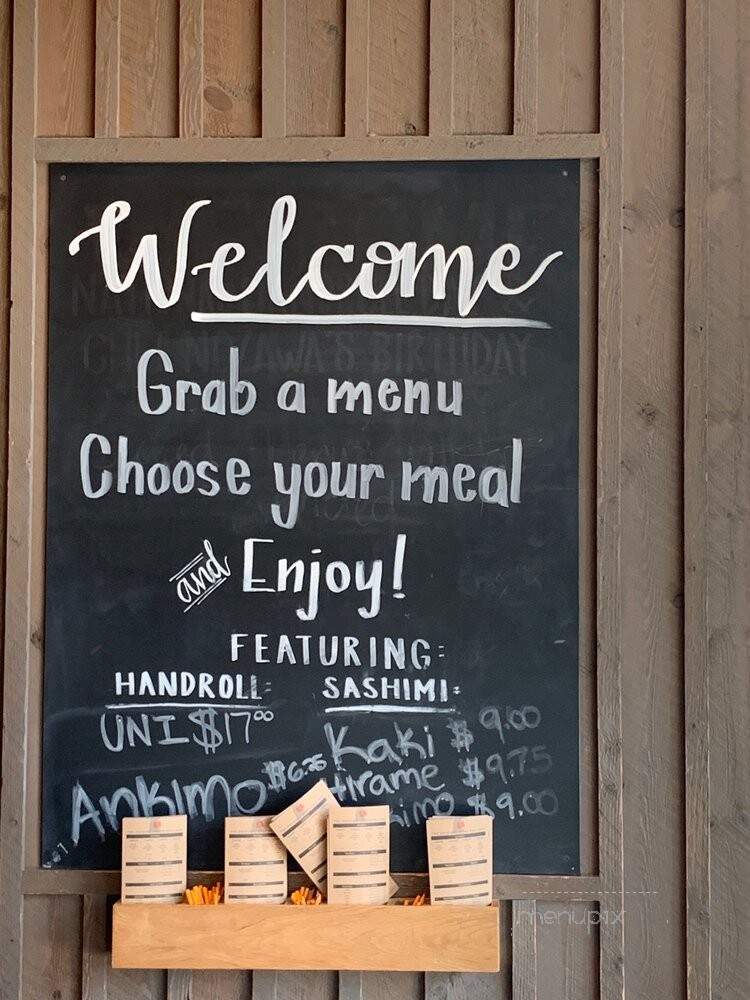 Welcome
Grab a menu
Choose your meal
and Enjoy!
FEATURING:
HANDROLL: SASHIMI:
UNI $17.00 Kaki $9.00
Ankimo $6.25 Hirame $9.75
$9.00
menupix